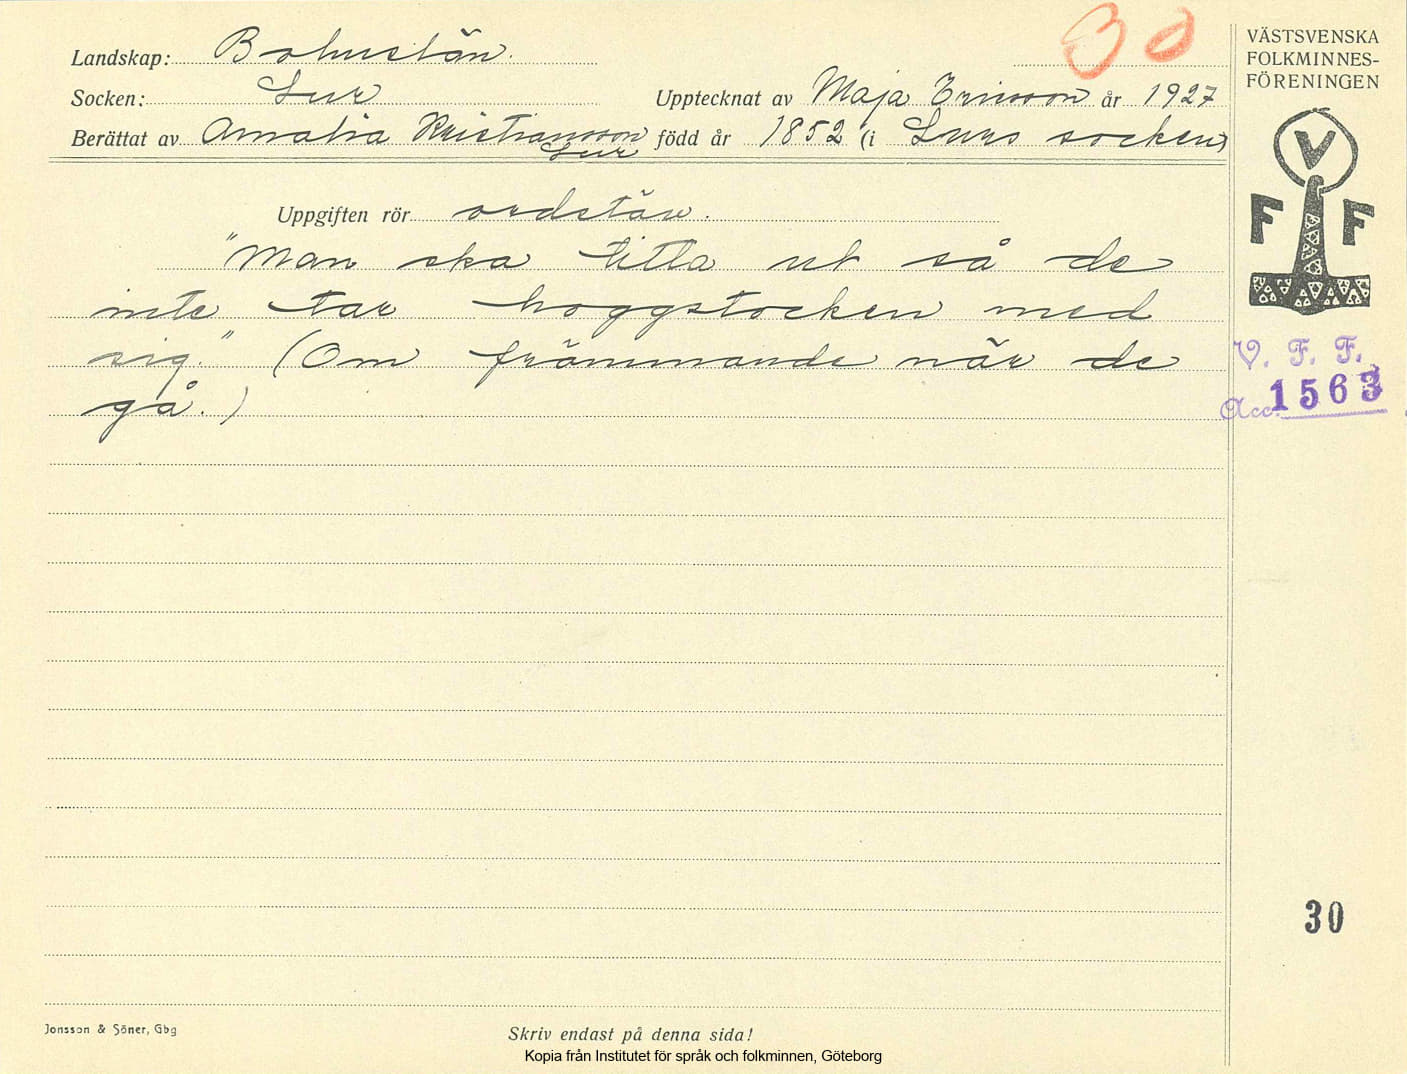 30
Landskap: Bohuslän.
Socken: Lur
Upptecknat av Maja Ericsson år 1927
Berättat av Amalia Kristiansson Lur född år 1852 (i Lurs socken)
Uppgiften rör ordstäv.
"Man ska titta ut så de
inte tar hoggstocken med
sig." (Om främmande när de
gå.)
VÄSTSVENSKA
FOLKMINNES-
FÖRENINGEN
V
F F
V. F. F.
Acc. 1563
30
Jonsson & Söner, Gbg
Skriv endast på denna sida!
Kopia från Institutet för språk och folkminnen, Göteborg